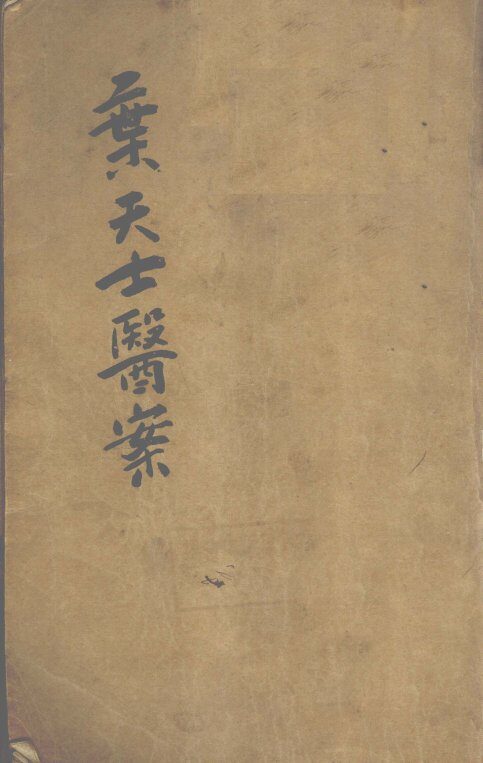 葉天士醫案